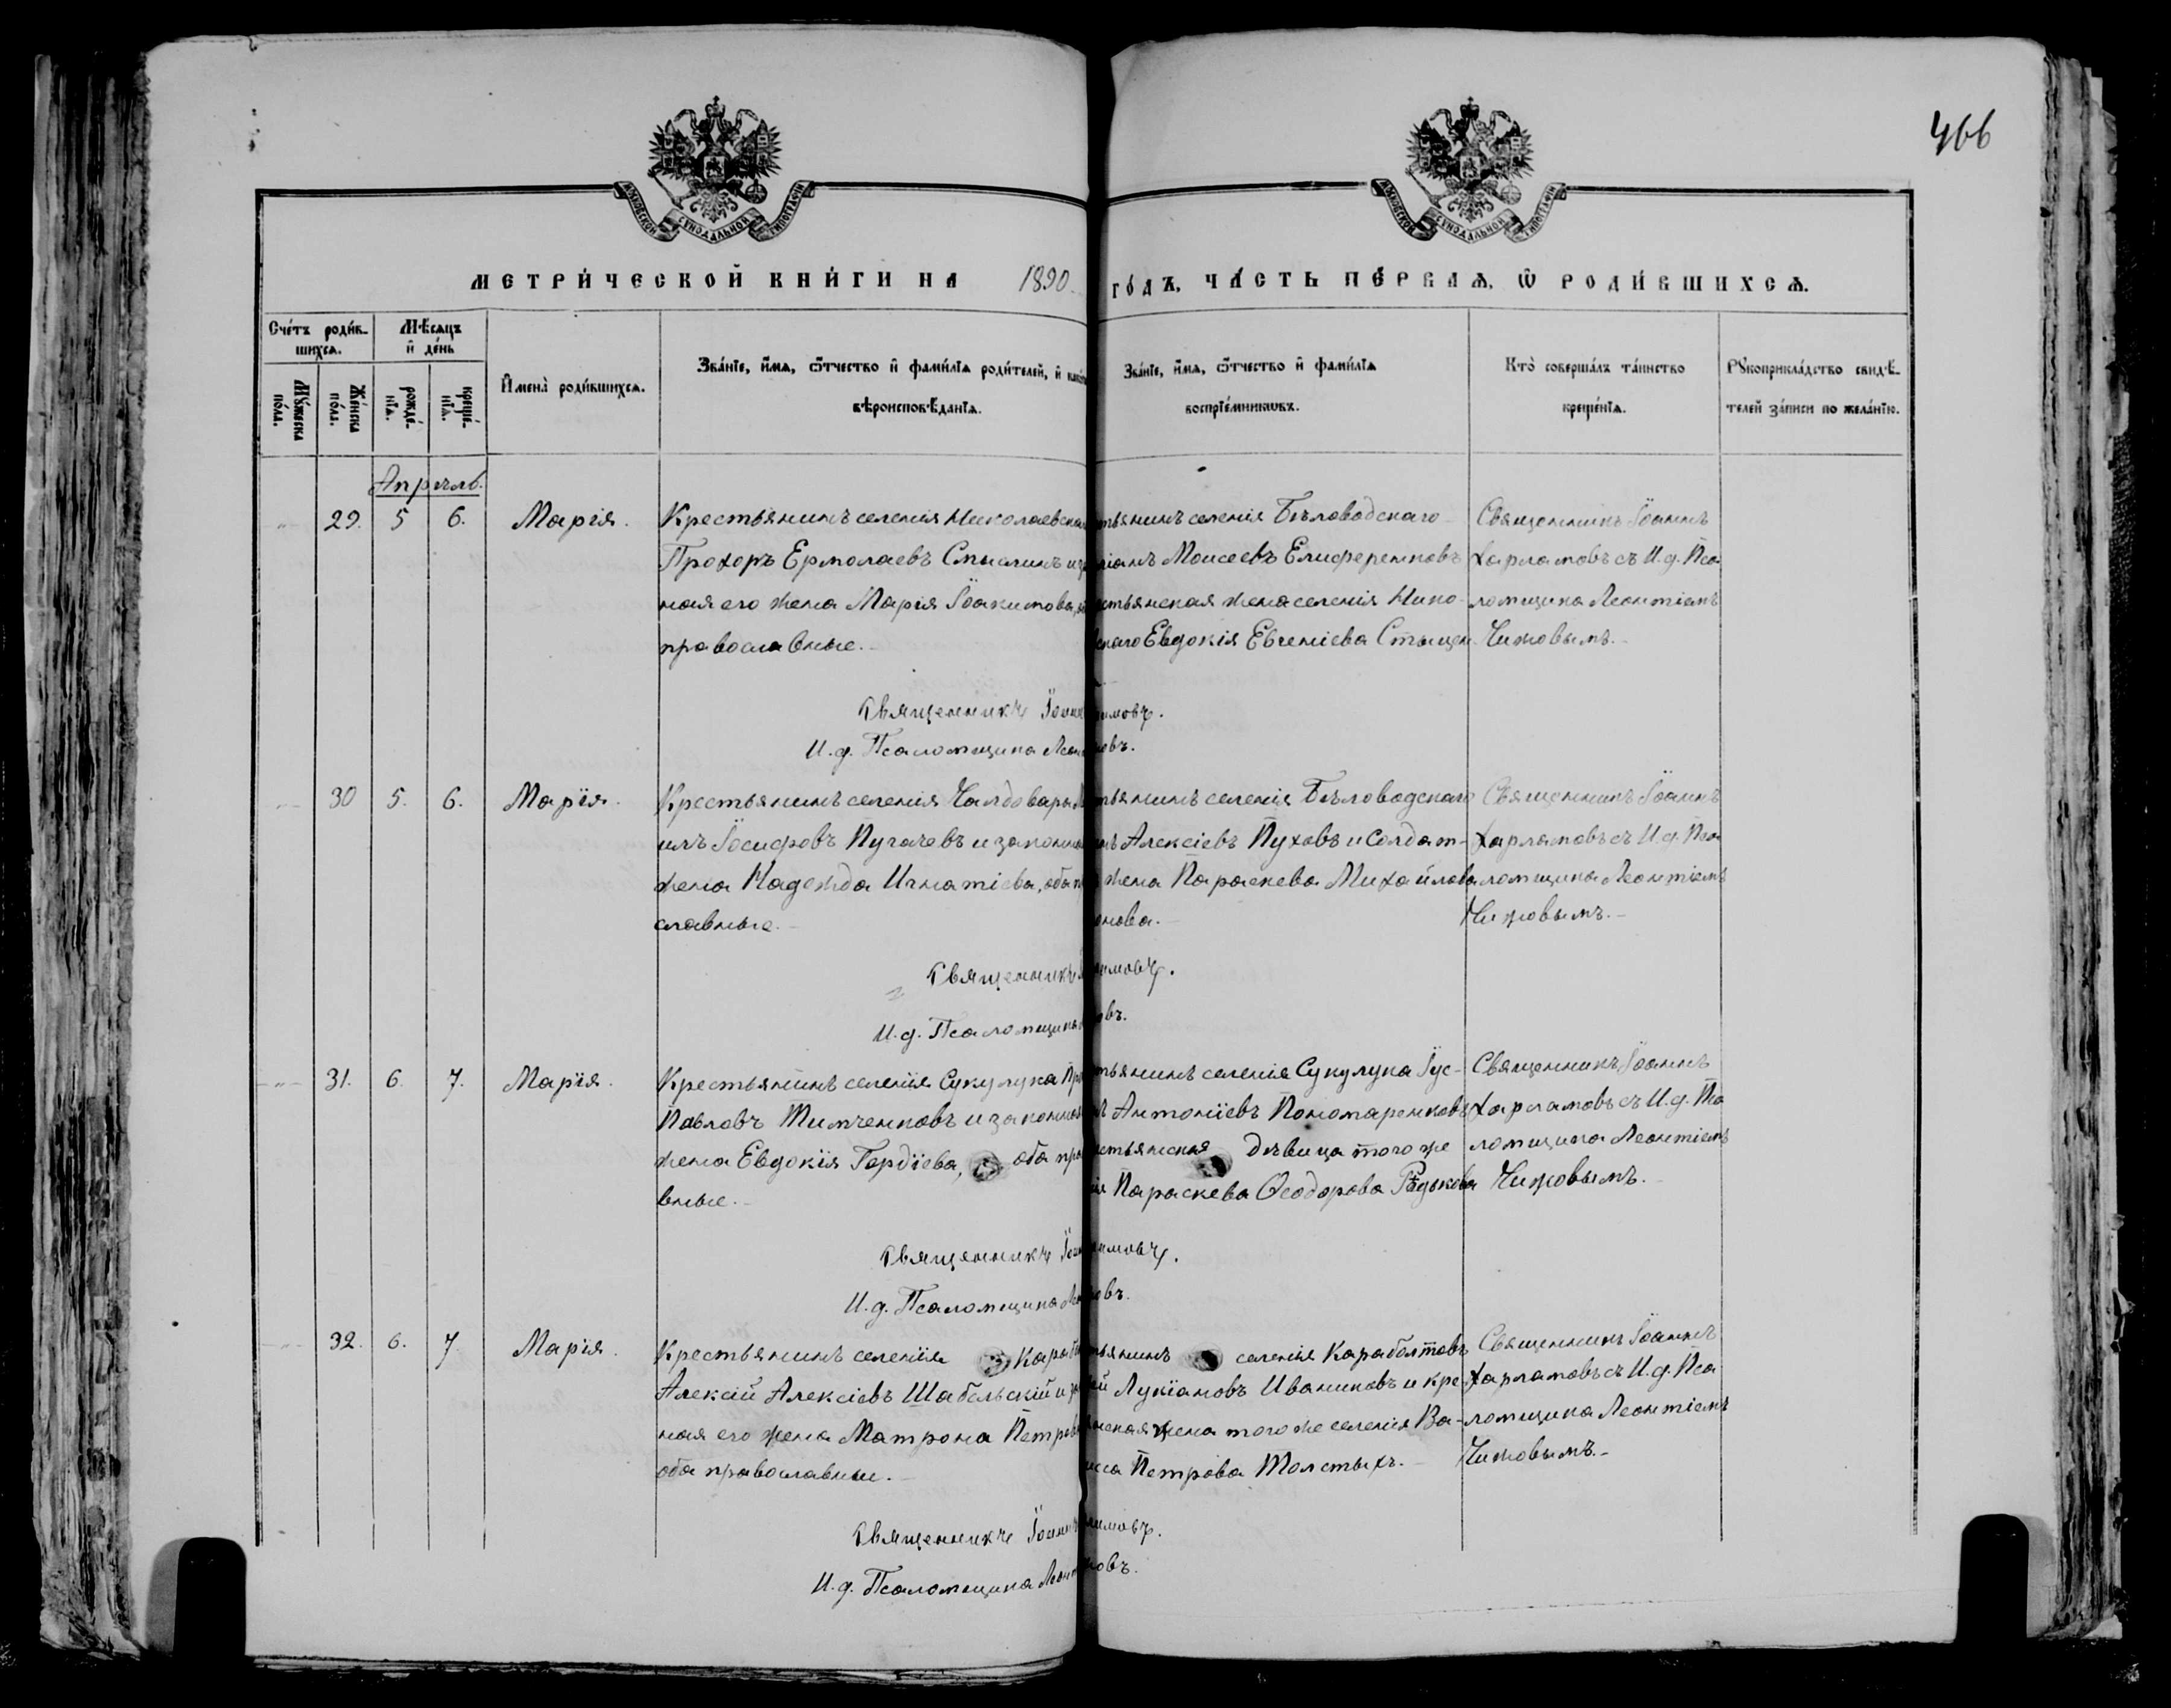 466
МОСКОВСКОЙ СѴНОДАЛЬНОЙ ТИПОГРАФІИ
МОСКОВСКОЙ СѴНОДАЛЬНОЙ ТИПОГРАФІИ
МЕТРИ́ЧЕСКОЙ КНИ́ГИ НА 1890 ГО́ДЪ, ЧА́СТЬ ПЕ́РВАѦ, Ѽ РОДИ́ВШИХСѦ.
Сче́тъ роди́в-
шихсѧ.
Мѣ́сѧцъ
и҆ де́нь
Мꙋ́жеска
по́ла.
Же́нска
по́ла.
рожде́-
нїѧ.
креще́-
нїѧ.
И҆мена̀ роди́вшихсѧ.
Зва́нїе, и҆́мѧ, ѻ҆́тчество и҆ фами́лїѧ роди́телей, и҆
вѣроисповѣ́данїѧ.
Зва́нїе, и҆́мѧ, ѻ҆́тчество и҆ фами́лїѧ
воспрїе́мникѡвъ.
Кто̀ соверша́лъ та́инство
креще́нїѧ.
Рꙋкоприкла́дство свидѣ́-
телей за́писи по жела́нїю.
Апрѣль.
29. 5 6. Марія.
Крестьянинъ селенія Николаевска
Прохоръ Ермолаевъ Смыслинъ и за
ная его жена Марія Іоакимова,
православные.
тьянинъ селенія Бѣловодскаго
ианъ Моисеевъ Елиференковъ
стьянская жена селенія Нико-
скаго Евдокія Евгеніева Стыцен
Священникъ Іоаннъ
Харламовъ съ И.д. Пса
ломщика Леонтіемъ
Чижовымъ.
Священникъ Іоанн ламовъ.
И.д. Псаломщика Леон овъ.
30 5. 6. Марія.
Крестьянинъ селенія Чалдовары
илъ Іосифовъ Пугачевъ и законная
жена Надежда Игнатіева, оба п
славные.
тьянинъ селенія Бѣловодскаго
Алексіевъ Пуховъ и солдат-
жена Параскева Михайлова
онова.
Священникъ Іоаннъ
Харламовъ съ И.д. Пса
ломщика Леонтіемъ
Чижовымъ.
Священникъ ламовъ.
И.д. Псаломщика овъ.
31. 6. 7. Марія.
Крестьянинъ селенія Сукулука
Павловъ Тимченковъ и законная
жена Евдокія Гордіева, оба пра
вные.
тьянинъ селенія Сукулука Іус-
Антоніевъ Пономаренковъ
стьянская дѣвица того же
ія Параскева Ѳеодорова Рѣдькова
Священникъ Іоаннъ
Харламовъ съ И.д. Пса
ломщика Леонтіемъ
Чижовымъ.
Священникъ Іоан ламовъ.
И.д. Псаломщика Ле овъ.
32. 6. 7. Марія.
Крестьянинъ селенія Карабал
Алексій Алексіевъ Шабельскій и за
ная его жена Матрона Петрова
оба православные.
тьянинъ селенія Карабалтовъ
ей Лукіановъ Иваниковъ и кре-
янская жена того же селенія Ва-
исса Петрова Толстыхъ.
Священникъ Іоаннъ
Харламовъ съ И.д. Пса
ломщика Леонтіемъ
Чижовымъ.
Священникъ Іоаннъ ламовъ.
И.д. Псаломщика Леонт овъ.